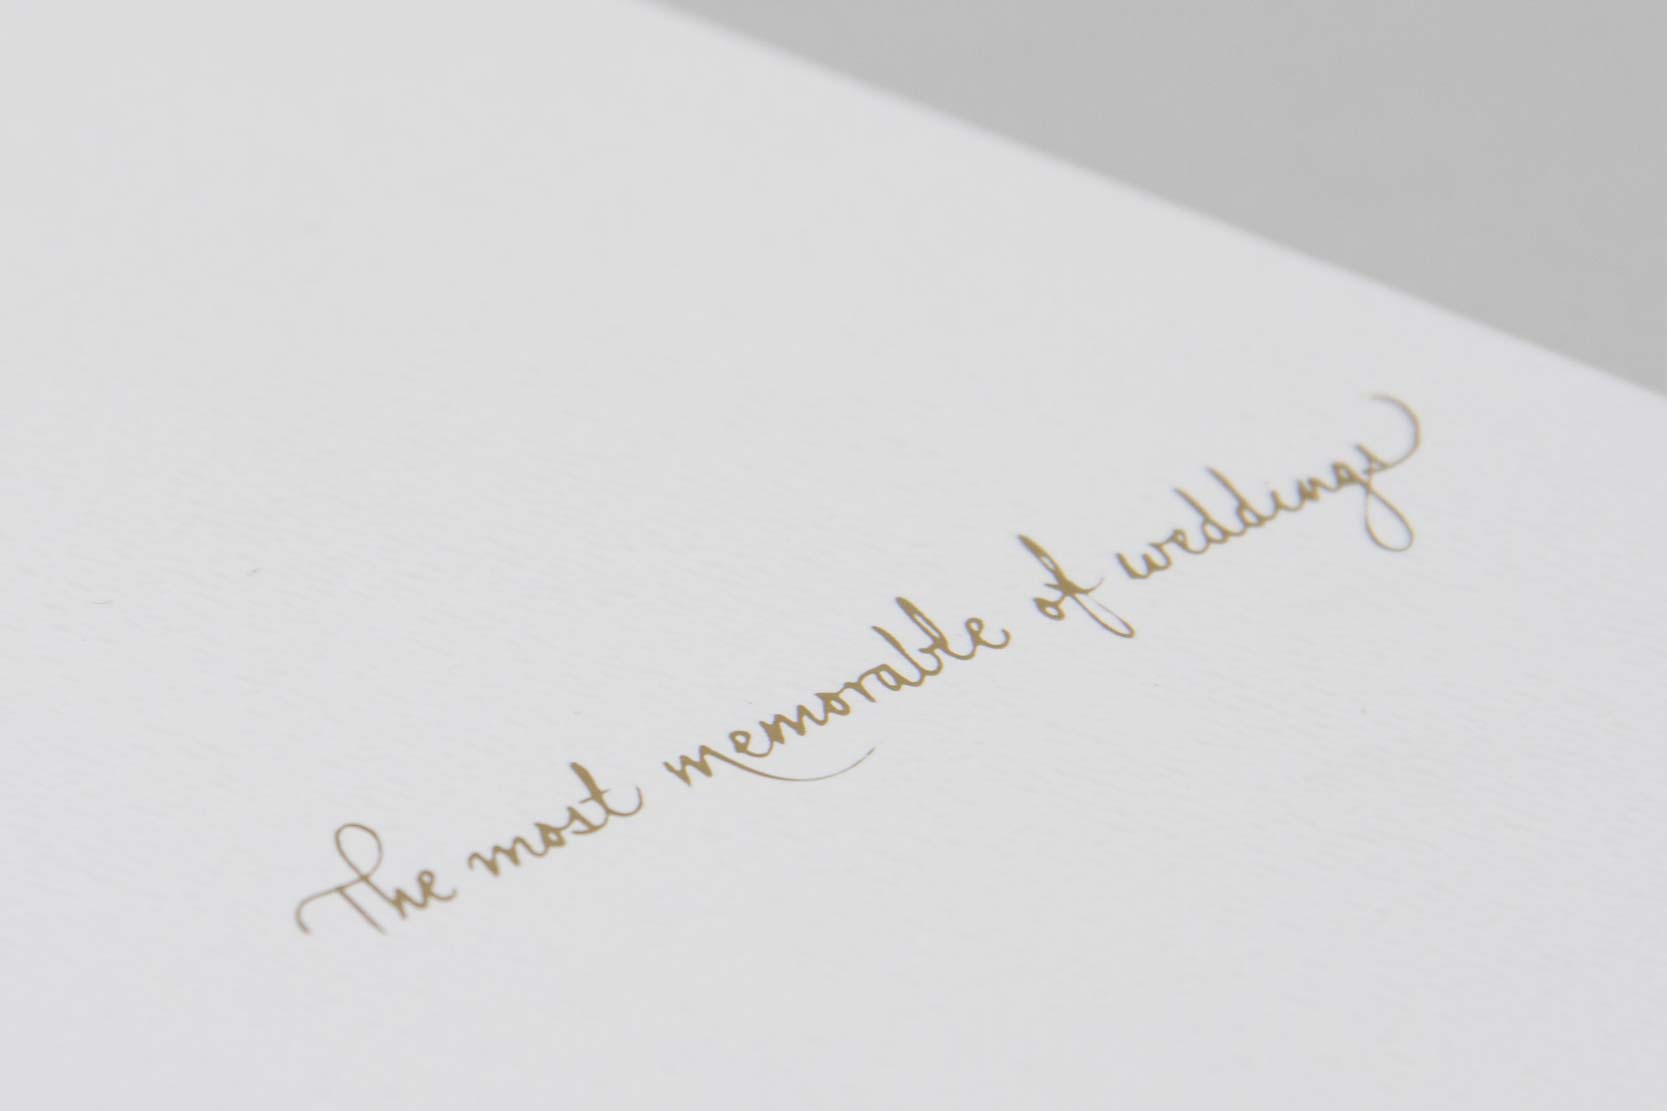 The most memorable of weddings